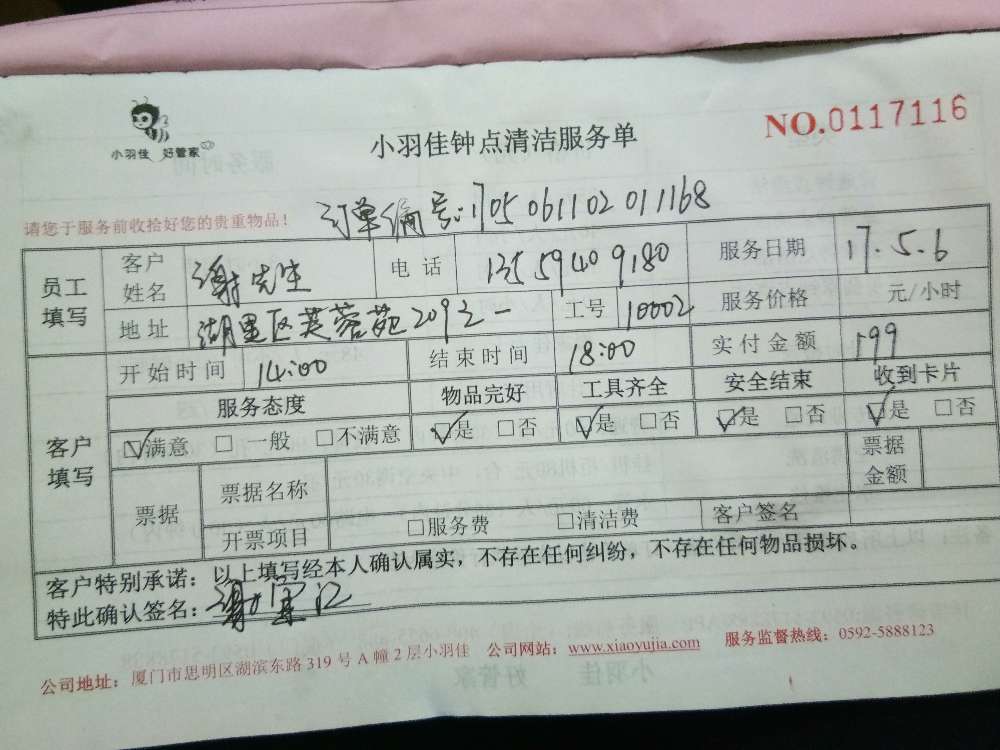 小羽佳 好管家
小羽佳钟点清洁服务单
NO.0117116
订单编号:1705061102011168
请您于服务前收拾好您的贵重物品!
员工填写 客户姓名 谢先生 电话 13559409180 服务日期 17.5.6
地址 湖里区芙蓉苑209之一 工号 10002 服务价格 元/小时
开始时间 14:00 结束时间 18:00 实付金额 199
客户填写 服务态度 物品完好 工具齐全 安全结束 收到卡片
☑满意 □一般 □不满意 ☑是 □否 ☑是 □否 ☑是 □否 ☑是 □否
票据 票据名称 票据金额
开票项目 □服务费 □清洁费 客户签名
客户特别承诺:以上填写经本人确认属实,不存在任何纠纷,不存在任何物品损坏。
特此确认签名:谢
公司地址:厦门市思明区湖滨东路 319 号 A 幢 2 层小羽佳 公司网站:www.xiaoyujia.com 服务监督热线:0592-5888123